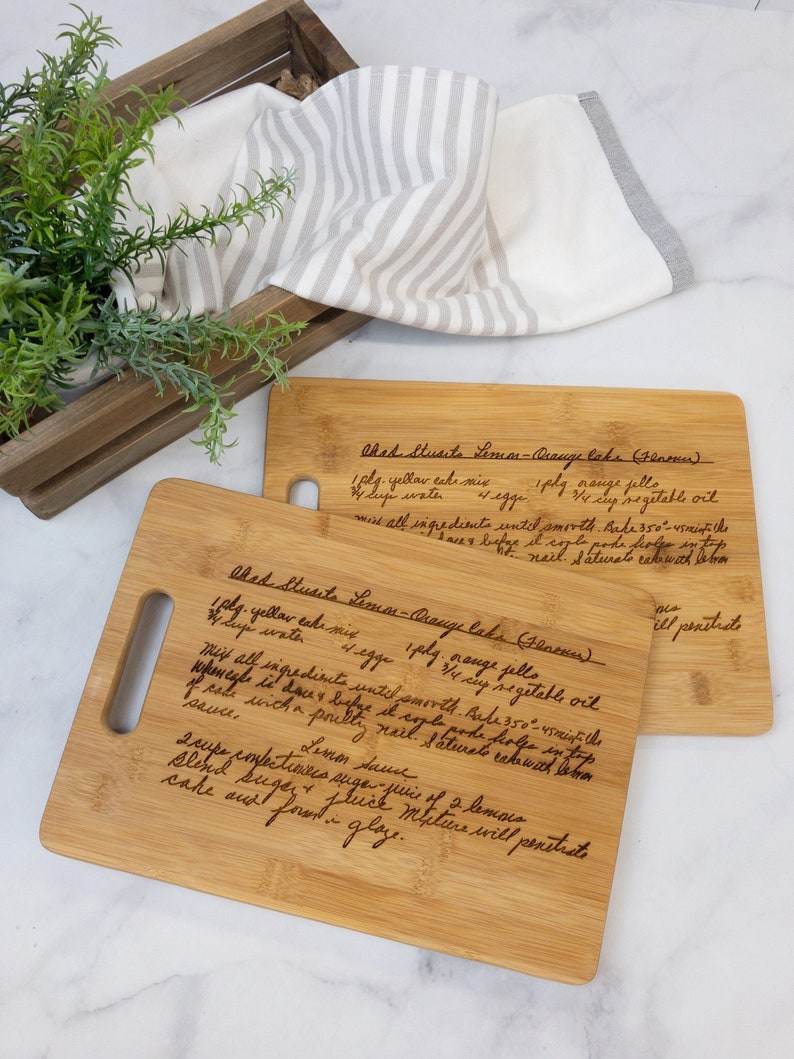 Lemon-Orange Cake (Florence)
1 pkg. yellow cake mix 1 pkg. orange jello
3/4 cup water 4 eggs 3/4 cup vegetable oil
Mix all ingredients until smooth. Bake 350°-45
done & before it cools poke holes in top
nail. Saturate cake with lemon
will penetrate
Lemon-Orange Cake (Florence)
1 pkg. yellow cake mix 1 pkg. orange jello
3/4 cup water 4 eggs 3/4 cup vegetable oil
Mix all ingredients until smooth. Bake 350°-45
When cake is done & before it cools poke holes in top
of cake with a poultry nail. Saturate cake with lemon
sauce.
Lemon Sauce
2 cups confectioners sugar - juice of 2 lemons
Blend sugar & juice Mixture will penetrate
cake and form a glaze.